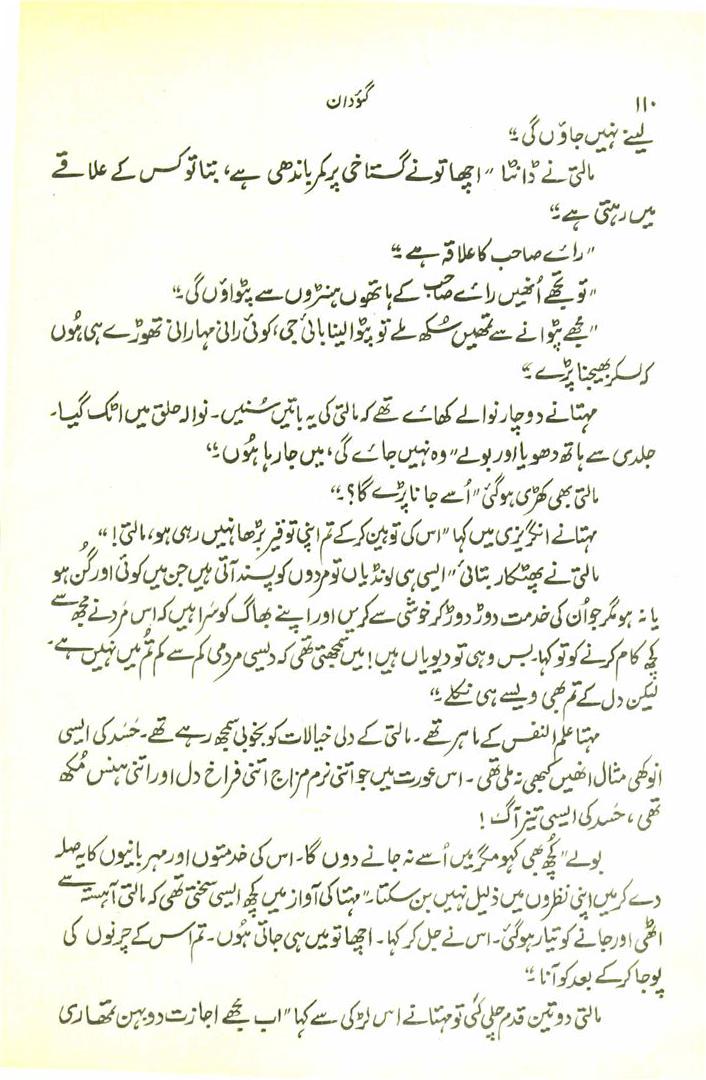 ۱۱۰
گئودان
لینے نہیں جاؤں گی۔“
مالتی نے ڈانٹا ”اچھا تو نے گستاخی پر کمر باندھی ہے، بتا تو کس کے علاقے
میں رہتی ہے۔“
”رائے صاحب کا علاقہ ہے۔“
”تو تجھے اُنھیں رائے صاحب کے ہاتھوں ہنٹروں سے پٹواؤں گی۔“
”مجھے پٹوانے سے تمھیں سُکھ ملے تو پٹوا لینا بائی جی، کوئی رانی مہارانی تھوڑے ہی ہُوں
کہ لسکر بھیجنا پڑے۔“
مہتا نے دو چار نوالے کھائے تھے کہ مالتی کی یہ باتیں سُنیں۔ نوالہ حلق میں اٹک گیا۔
جلدی سے ہاتھ دھویا اور بولے ”وہ نہیں جائے گی، میں جا رہا ہُوں۔“
مالتی بھی کھڑی ہو گئی ”اُسے جانا پڑے گا؟۔“
مہتا نے انگریزی میں کہا ”اس کی توہین کر کے تم اپنی توقیر بڑھا نہیں رہی ہو، مالتی! “
مالتی نے پھٹکار بتائی ”ایسی ہی لونڈیاں تو مردوں کو پسند آتی ہیں جن میں کوئی اور گُن ہو
یا نہ ہو مگر جو اُن کی خدمت دوڑ دوڑ کر خوشی سے کریں اور اپنے بھاگ کو سَراہیں کہ اس مُرد نے مجھ سے
کچھ کام کرنے کو تو کہا۔ بس وہی تو دیویاں ہیں! میں سمجھتی تھی کہ دیسی مردمی کم سے کم تُم میں نہیں ہے۔
لیکن دل کے تم بھی ویسے ہی نکلے۔“
مہتا علم النفس کے ماہر تھے۔ مالتی کے دلی خیالات کو بخوبی سمجھ رہے تھے۔ حَسَد کی ایسی
انوکھی مثال انھیں کبھی نہ ملی تھی۔ اس عورت میں جو اتنی نرم مزاج اتنی فراخ دل اور اتنی ہنس مُکھ
تھی، حَسَد کی ایسی تیز آگ!
بولے ”کُچھ بھی کہو مگر میں اُسے نہ جانے دوں گا۔ اس کی خدمتوں اور مہربانیوں کا یہ صلہ
دے کر میں اپنی نظروں میں ذلیل نہیں بن سکتا۔“ مہتا کی آواز میں کچھ ایسی سختی تھی کہ مالتی آہستہ سے
اٹھی اور جانے کو تیار ہو گئی۔ اس نے جل کر کہا۔ اچھا تو میں ہی جاتی ہُوں۔ تم اس کے چرنوں کی
پوجا کر کے بعد کو آنا۔“
مالتی دو تین قدم چلی گئی تو مہتا نے اس لڑکی سے کہا ”اب مجھے اجازت دو بہن تمھاری